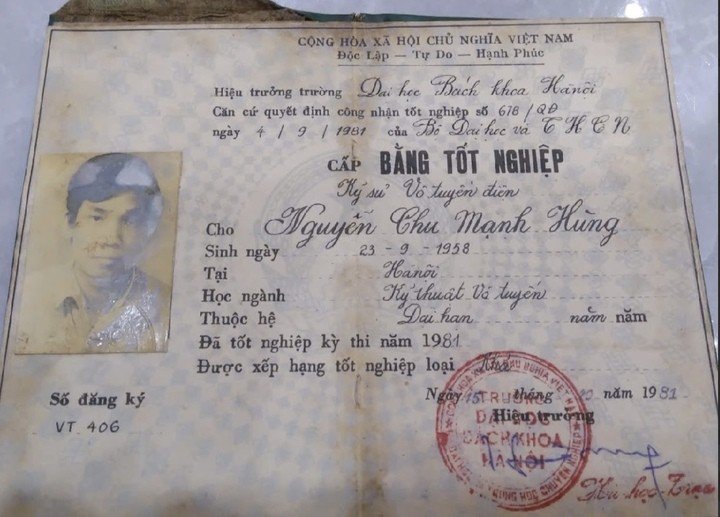 CỘNG HÒA XÃ HỘI CHỦ NGHĨA VIỆT NAM
Độc Lập — Tự Do — Hạnh Phúc
Hiệu trưởng trường Đại học Bách khoa Hà nội
Căn cứ quyết định công nhận tốt nghiệp số 678/QĐ
ngày 4/9/1981 của Bộ Đại học và THCN
CẤP BẰNG TỐT NGHIỆP
Kỹ sư Vô tuyến điện
Cho Nguyễn Chu Mạnh Hùng
Sinh ngày 23-9-1958
Tại Hà nội
Học ngành Kỹ thuật Vô tuyến
Thuộc hệ Dài hạn năm năm
Đã tốt nghiệp kỳ thi năm 1981
Được xếp hạng tốt nghiệp loại Khá
Ngày 15 tháng năm 1981
Số đăng ký
Hiệu trưởng
VT 406
TRƯỜNG
ĐẠI HỌC
BÁCH KHOA
HÀ NỘI